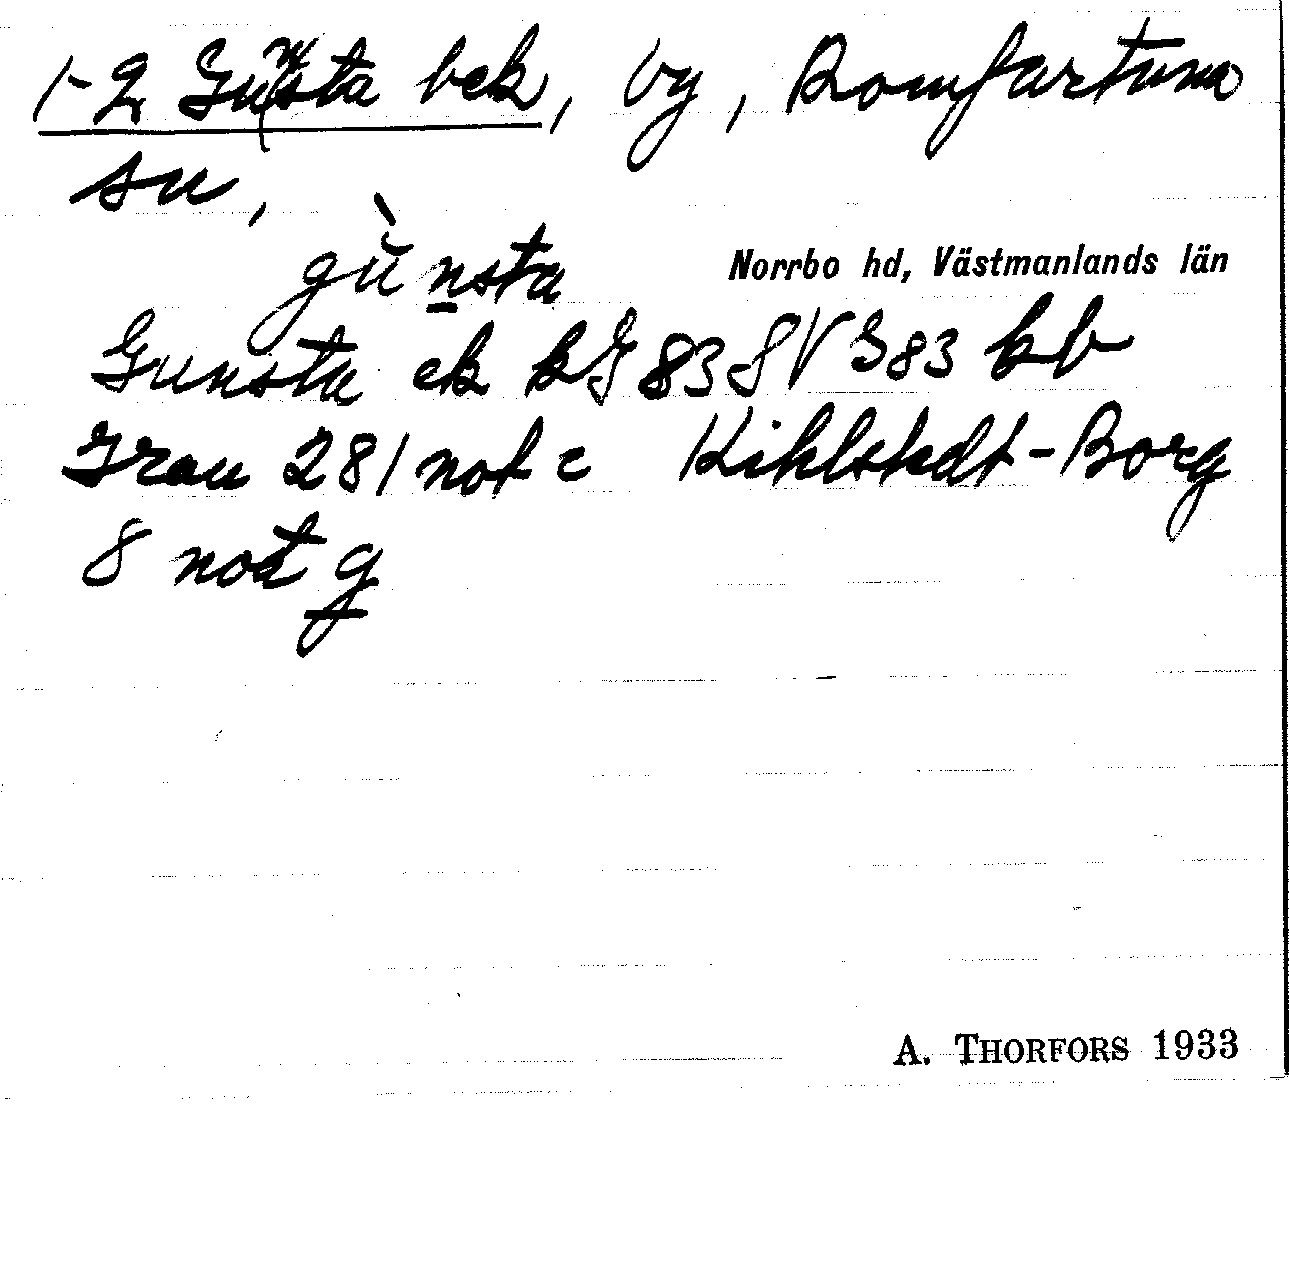 1-2 Gunsta bek, by, Romfartuna
sn,
gùnsta
Norrbo hd, Västmanlands län
Gunsta ek kG 83 8V 383 kb
Iran 281 not c Kihlstedt-Borg
8 not g
A. THORFORS 1933